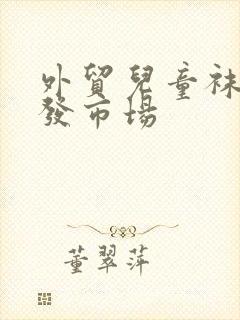 外貿兒童袜
發市場
董翠萍